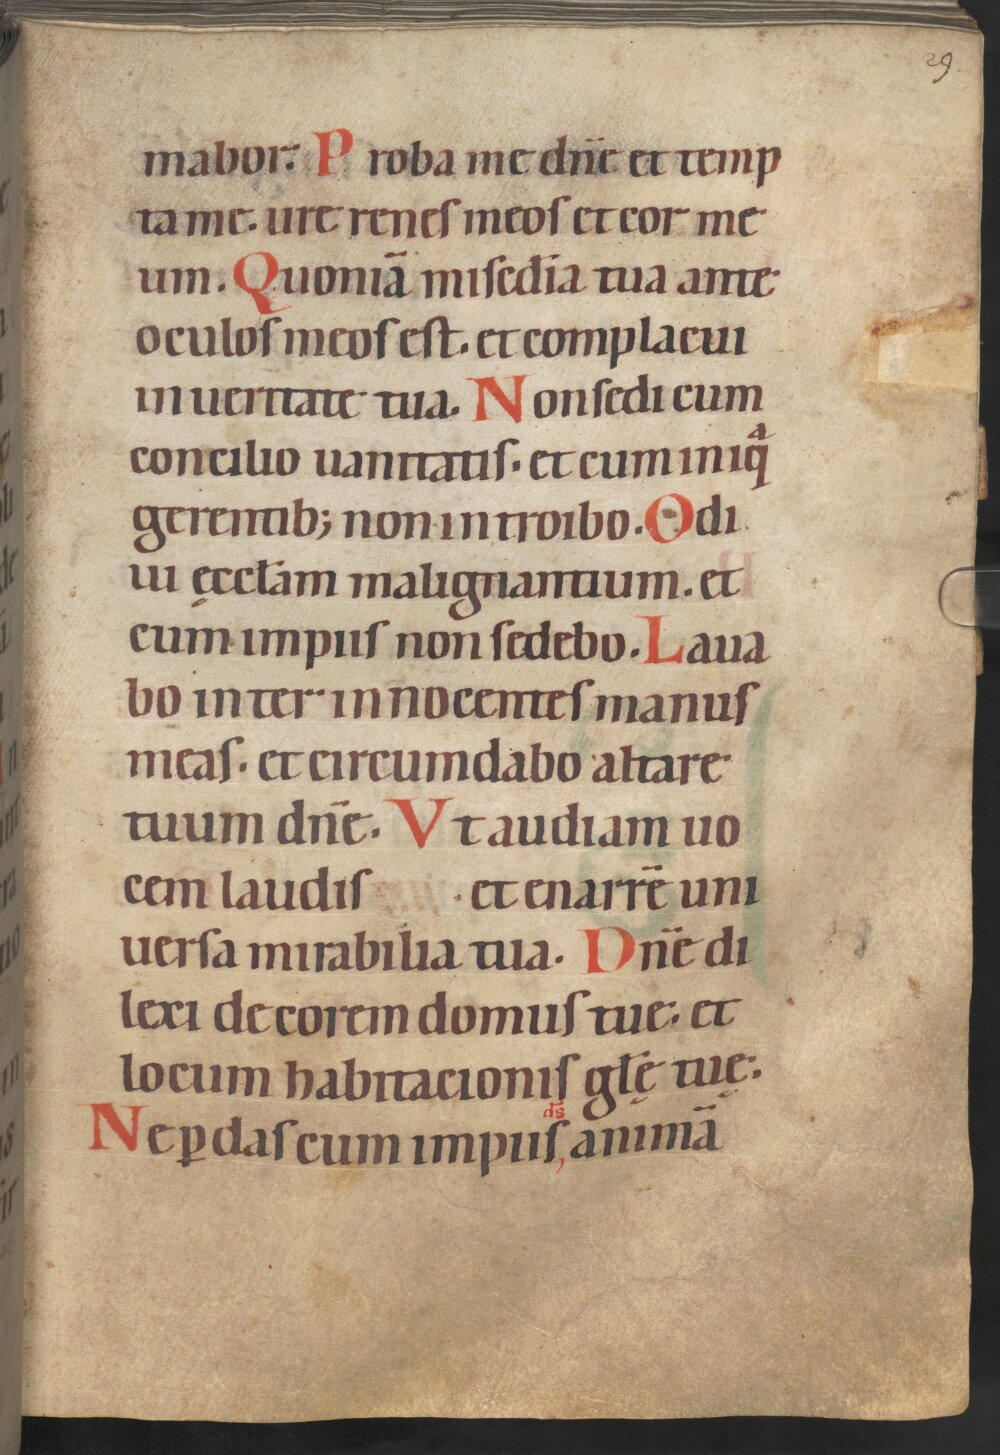 29
mabor. Proba me dn̄e et temp
ta me. ure renes meos et cor me
um. Quoniā misedīa tua ante
oculos meos est. et complacui
in ueritate tua. Non sedi cum
concilio uanitatis. et cum iniqᵃ̄
gerentib; non introibo. Odi
ui ęccłam malignantium. et
cum impiis non sedebo. Laua
bo inter innocentes manus
meas. et circumdabo altare
tuum dn̄e. Vt audiam uo
cem laudis . et enarrē uni
uersa mirabilia tua. Dn̄e di
lexi decorem domus tue. et
locum habitacionis głę tuę.
Ne ꝑdas cum impiis, d̄s animā